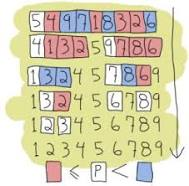 5 4 9 7 1 8 3 2 6
4 1 3 2 5 9 7 8 6
1 3 2 4 5 7 8 6 9
1 3 2 4 5 6 7 8 9
1 2 3 4 5 6 7 8 9
1 2 3 4 5 6 7 8 9
< P <